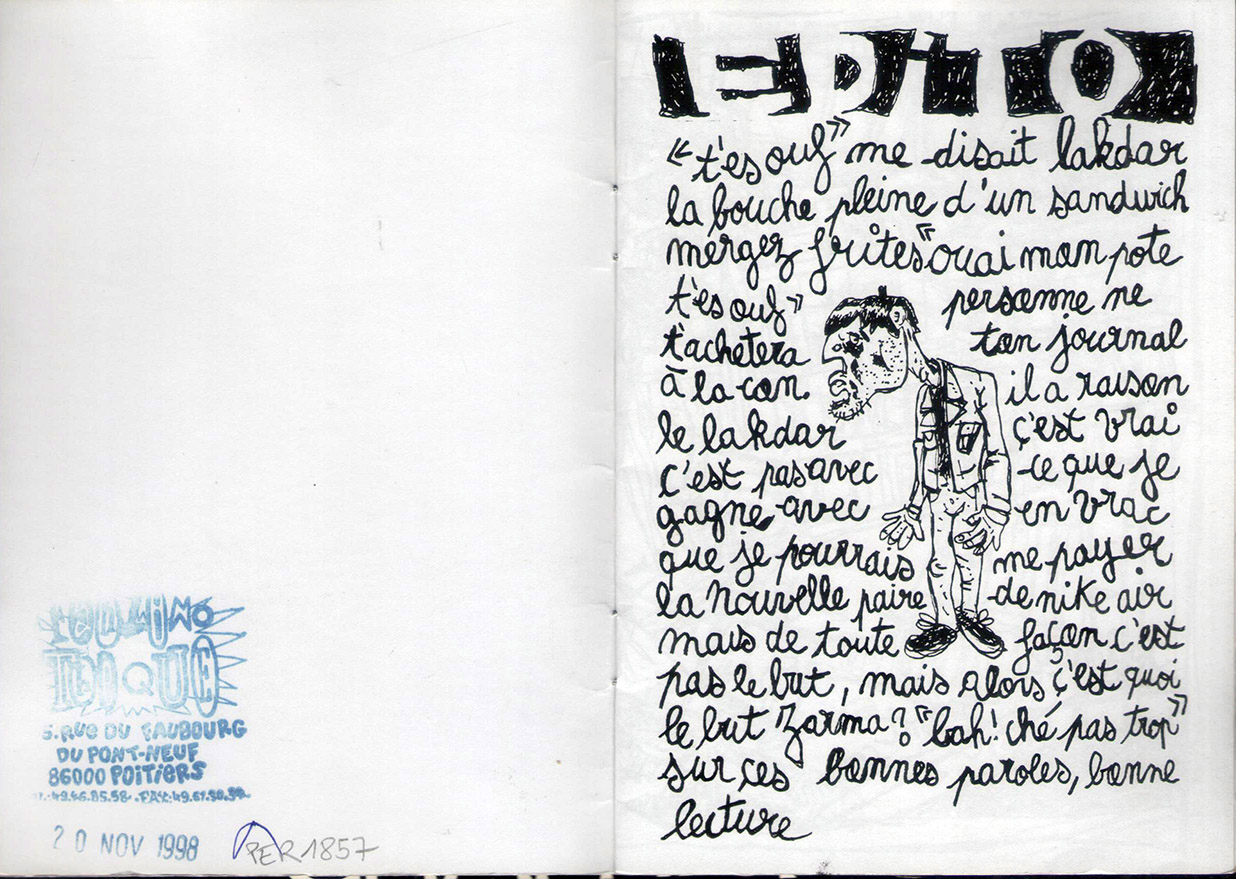 FANZINO
THÈQUE
5. RUE DU FAUBOURG
DU PONT-NEUF
86000 POITIERS
49.46.85.58 - FAX:49.61.30.34
20 NOV 1998
PER 1857
EDITO
« t'es ouf » me disait lakdar
la bouche pleine d'un sandwich
mergez frites « ouai mon pote
t'es ouf » personne ne
t'achetera ton journal
à la con. il a raison
le lakdar c'est vrai
c'est pas avec ce que je
gagne, avec en vrac
que je pourrais me payer
la nouvelle paire de nike air
mais de toute façon c'est
pas le but, mais alors ç'est quoi
le but zarma? « bah! ché pas trop »
sur ces bonnes paroles, bonne
lecture